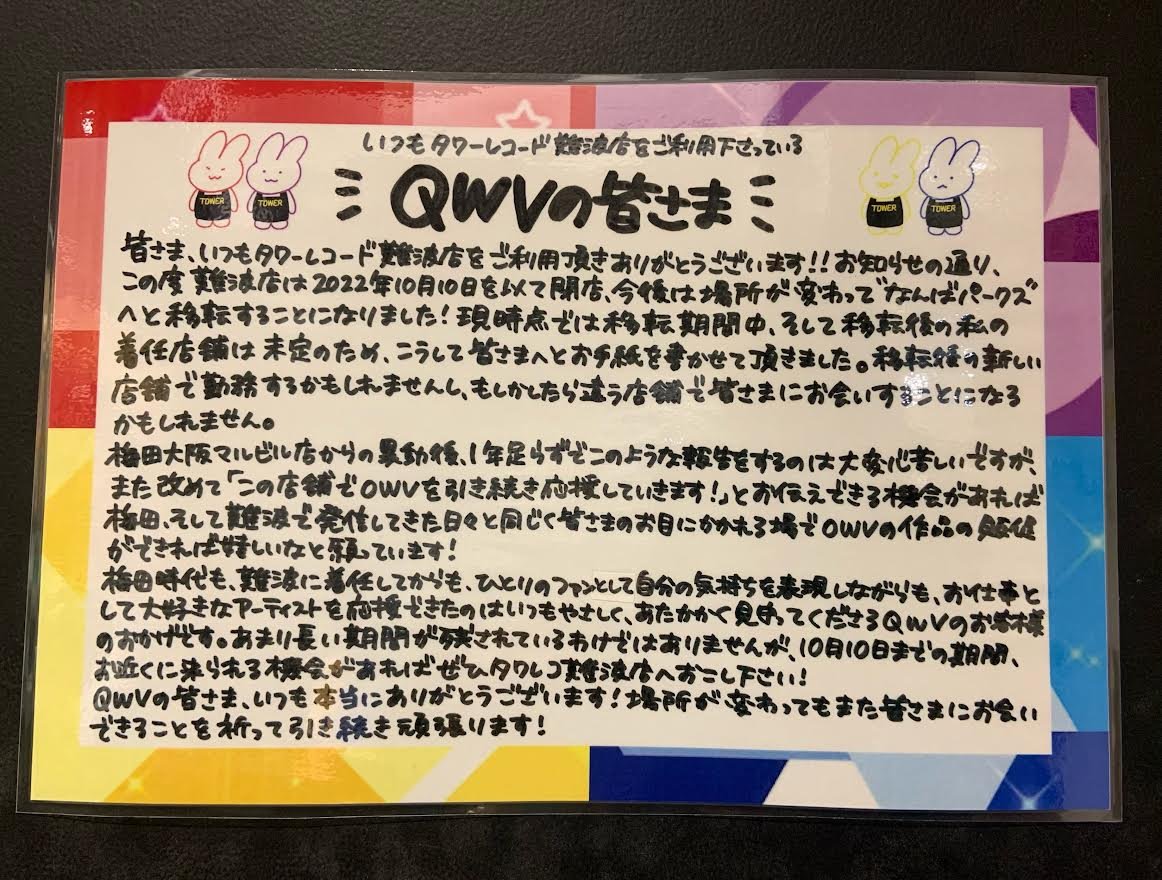 いつもタワーレコード難波店をご利用下さっている
QWVの皆さま
TOWER
TOWER
TOWER
TOWER
皆さま、いつもタワーレコード難波店をご利用頂きありがとうございます!!お知らせの通り、
この度難波店は2022年10月10日を以て閉店、今後は場所が変わって"なんばパークス"
へと移転することになりました!現時点では移転期間中、そして移転後の私の
着任店舗は未定のため、こうして皆さまへとお手紙を書かせて頂きました。移転後の新しい
店舗で勤務するかもしれませんし、もしかしたら違う店舗で皆さまにお会いすることになる
かもしれません。
梅田大阪マルビル店からの異動後、1年足らずでこのような報告をするのは大変心苦しいですが、
また改めて「この店舗でOWVを引き続き応援していきます!」とお伝えできる機会があれば
梅田、そして難波で発信してきた日々と同じく皆さまのお目にかかれる場でOWVの作品の販促
ができれば嬉しいなと願っています!
梅田時代も、難波に着任してからも、ひとりのファンとして自分の気持ちを表現しながらも、お仕事と
して大好きなアーティストを応援できたのはいつもやさしく、あたたかく見守ってくださるQWVのお客様
のおかげです。あまり長い期間が残されているわけではありませんが、10月10日までの期間、
お近くに来られる機会があればぜひタワレコ難波店へお越し下さい!
QWVの皆さま、いつも本当にありがとうございます!場所が変わってもまた皆さまにお会い
できることを祈って引き続き頑張ります!